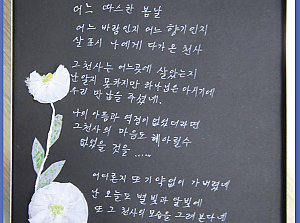 어느 따스한 봄날
어느 바람인지 어느 향기인지
살포시 나에게 다가온 천사
그 천사는 어느곳에 살았는지
난 알지 못하지만 하나님은 아시기에
우리 만남을 주셨네.
나의 아픔과 역경이 없었더라면
그천사의 마음도 헤아릴수
없었을 것을 .....
어디론지 또 기약없이 가버렸네
난 오늘도 별빛과 달빛에
또 그 천사의 모습을 그려본다네